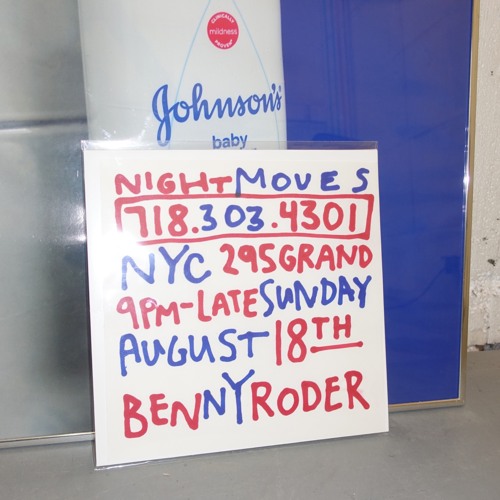 CLINICALLY
mildness
PROVEN
Johnson's
baby
NIGHT MOVES
718.303.4301
NYC 295 GRAND
9PM-LATE SUNDAY
AUGUST 18TH
BENNY RODER